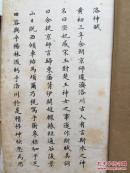 洛神賦
黃初三年余朝京師還濟洛川古人有言斯水之神
名曰宓妃感宋玉對楚王神女之事遂作斯賦其詞
曰余從京師言歸東藩背伊闕越轘轅經通谷陵景
山日既西傾車殆馬煩爾乃稅駕乎蘅皋秣駟乎芝
田容與乎楊林流眄乎洛川於是精移神駭忽焉